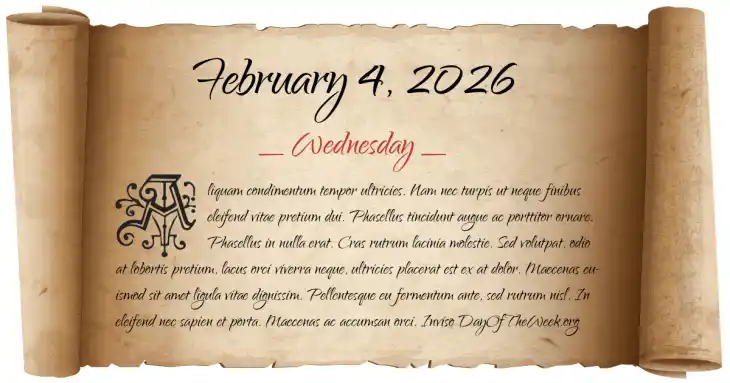 February 4, 2026
Wednesday
Aliquam condimentum tempor ultricies. Nam nec turpis ut neque finibus
eleifend vitae pretium dui. Phasellus tincidunt augue ac porttitor ornare.
Phasellus in nulla erat. Cras rutrum lacinia molestie. Sed volutpat, odio
at lobortis pretium, lacus orci viverra neque, ultricies placerat est ex at dolor. Maecenas eu-
ismod sit amet ligula vitae dignissim. Pellentesque eu fermentum ante, sed rutrum nisl. In
eleifend nec sapien et porta. Maecenas ac accumsan orci. Invise DayOfTheWeek.org